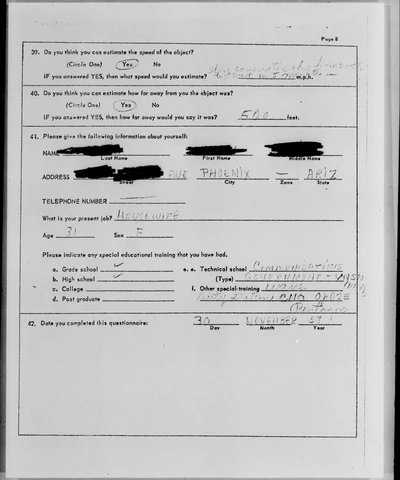 Page 8
39. Do you think you can estimate the speed of the object?
(Circle One) Yes No
IF you answered YES, then what speed would you estimate? m.p.h.
40. Do you think you can estimate how far away from you the object was?
(Circle One) Yes No
IF you answered YES, then how far away would you say it was? 500 feet.
41. Please give the following information about yourself:
NAME
Last Name First Name Middle Name
ADDRESS AVE PHOENIX — ARIZ
Street City Zone State
TELEPHONE NUMBER
What is your present job? HOUSEWIFE
Age 31 Sex F
Please indicate any special educational training that you have had.
a. Grade school ✓ e. e. Technical school COMMUNICATIONS
b. High school ✓ (Type) GOVERNMENT -
c. College f. Other special training
d. Post graduate
42. Date you completed this questionnaire: 30 NOVEMBER 57
Day Month Year